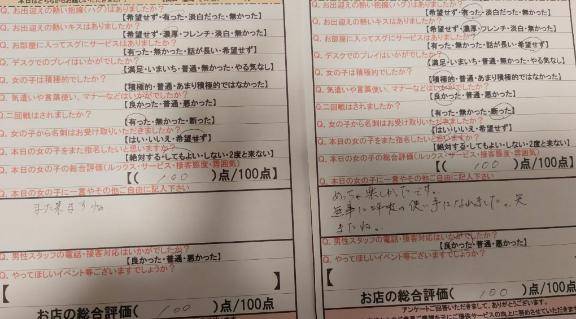 Q. お出迎えの熱い抱擁(ハグ)はありましたか?
【希望せず・有った・淡白だった・無かった】
Q. お出迎えの熱いキスはありましたか?
【希望せず・濃厚・フレンチ・淡白・無かった】
Q. お部屋に入ってスグにサービスはありましたか?
【有った・無かった・話が長い・希望せず】
Q. デスクでのプレイはいかがでしたか?
【満足・いまいち・普通・無かった・やる気なし】
Q. 女の子は積極的でしたか?
【積極的・普通・あまり積極的ではなかった】
Q. 気遣いや言葉使い、マナーなどはいかがでしたか?
【良かった・普通・悪かった】
Q. 二回戦はされましたか?
【有った・無かった・断った】
Q. 女の子から名刺はお受け取りいただきましたか?
【はい・いいえ・希望せず】
Q. 本日の女の子をまた指名したいと思いますか?
【絶対する・してもよい・しない・2度と来ない】
Q. 本日の女の子の総合評価(ルックス・サービス・接客態度・雰囲気)
【( 100 )点/100点】
Q. 本日の女の子に一言やその他ご自由に記入下さい
また来ますね
Q. 男性スタッフの電話・接客対応はいかがでしたか?
【良かった・普通・悪かった】
Q. やってほしいイベント等ございますでしょうか?
【 】
お店の総合評価( 100 )点/100点
Q. お出迎えの熱い抱擁(ハグ)はありましたか?
【希望せず・有った・淡白・無かった】
Q. お出迎えの熱いキスはありましたか?
【希望せず・濃厚・フレンチ・淡白・無かった】
Q. お部屋に入ってスグにサービスはありましたか?
【有った・無かった・話が長い・希望せず】
Q. デスクでのプレイはいかがでしたか?
【満足・いまいち・普通・無かった・やる気なし】
Q. 女の子は積極的でしたか?
【積極的・普通・あまり積極的ではなかった】
Q. 気遣いや言葉使い、マナーなどはいかがでしたか?
【良かった・普通・悪かった】
Q. 二回戦はされましたか?
【有った・無かった・断った】
Q. 女の子から名刺はお受け取りいただきましたか?
【はい・いいえ・希望せず】
Q. 本日の女の子をまた指名したいと思いますか?
【絶対する・してもよい・しない・2度と来ない】
Q. 本日の女の子の総合評価(ルックス・サービス・接客態度・雰囲気)
【( 100 )点/100点】
Q. 本日の女の子に一言やその他ご自由に記入下さい
めっちゃ楽しかったです。
無事に呼吸の使い手になれました。笑
またね。
Q. 男性スタッフの電話・接客対応はいかがでしたか?
【良かった・普通・悪かった】
Q. やってほしいイベント等ございますでしょうか?
【 】
お店の総合評価( 100 )点/100点
アンケートにご回答いただきまして、ありがとうございます。